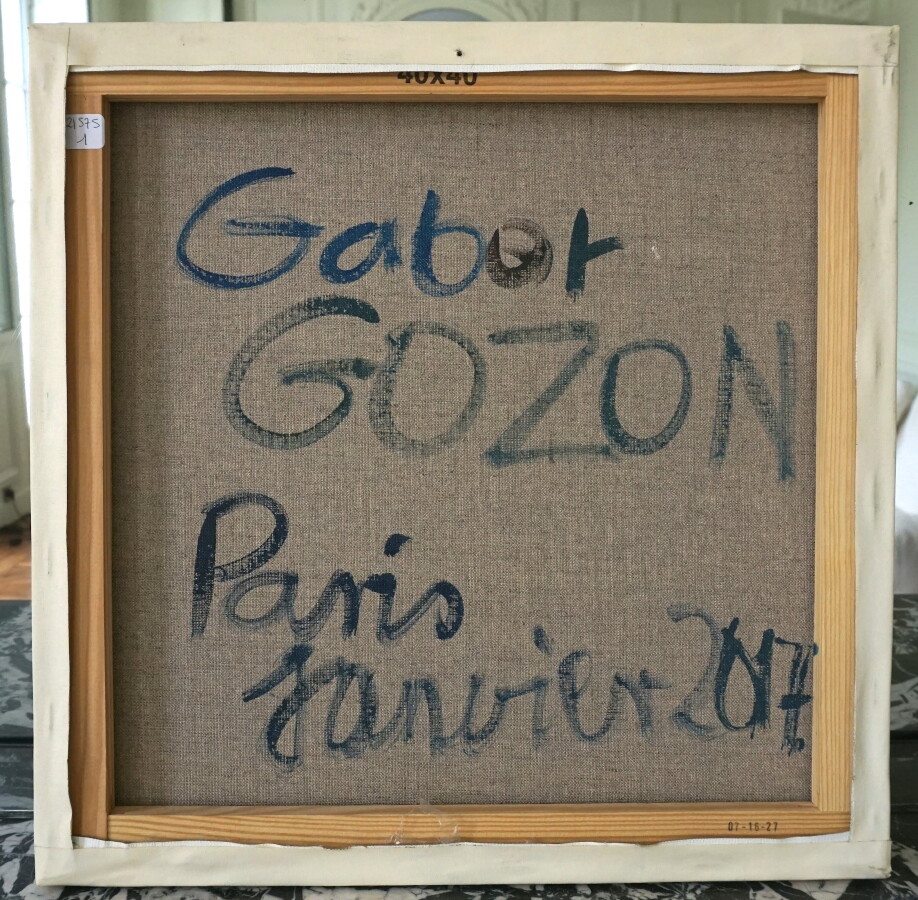 40x40
21575
1
Gabor
GOZON
Paris
Janvier 2017
07-16-27